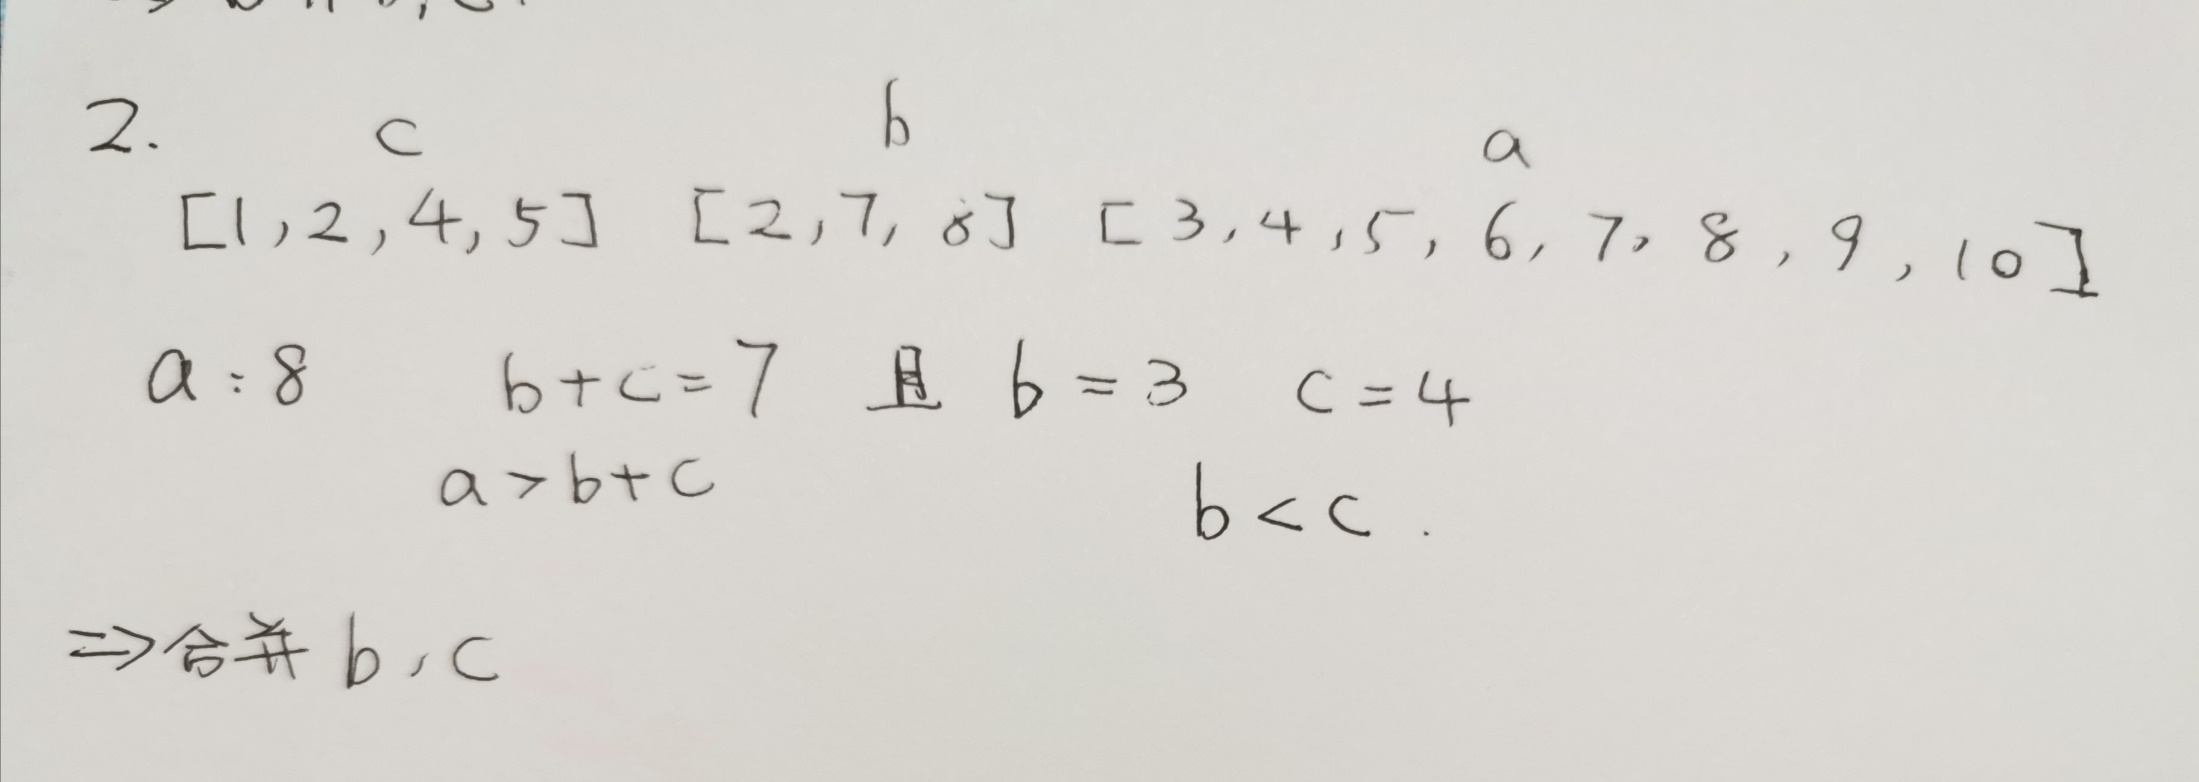 2.
c b a
[1,2,4,5] [2,7,8] [3,4,5,6,7,8,9,10]
a:8 b+c=7 且 b=3 c=4
a>b+c b<c.
⇒合并 b,c